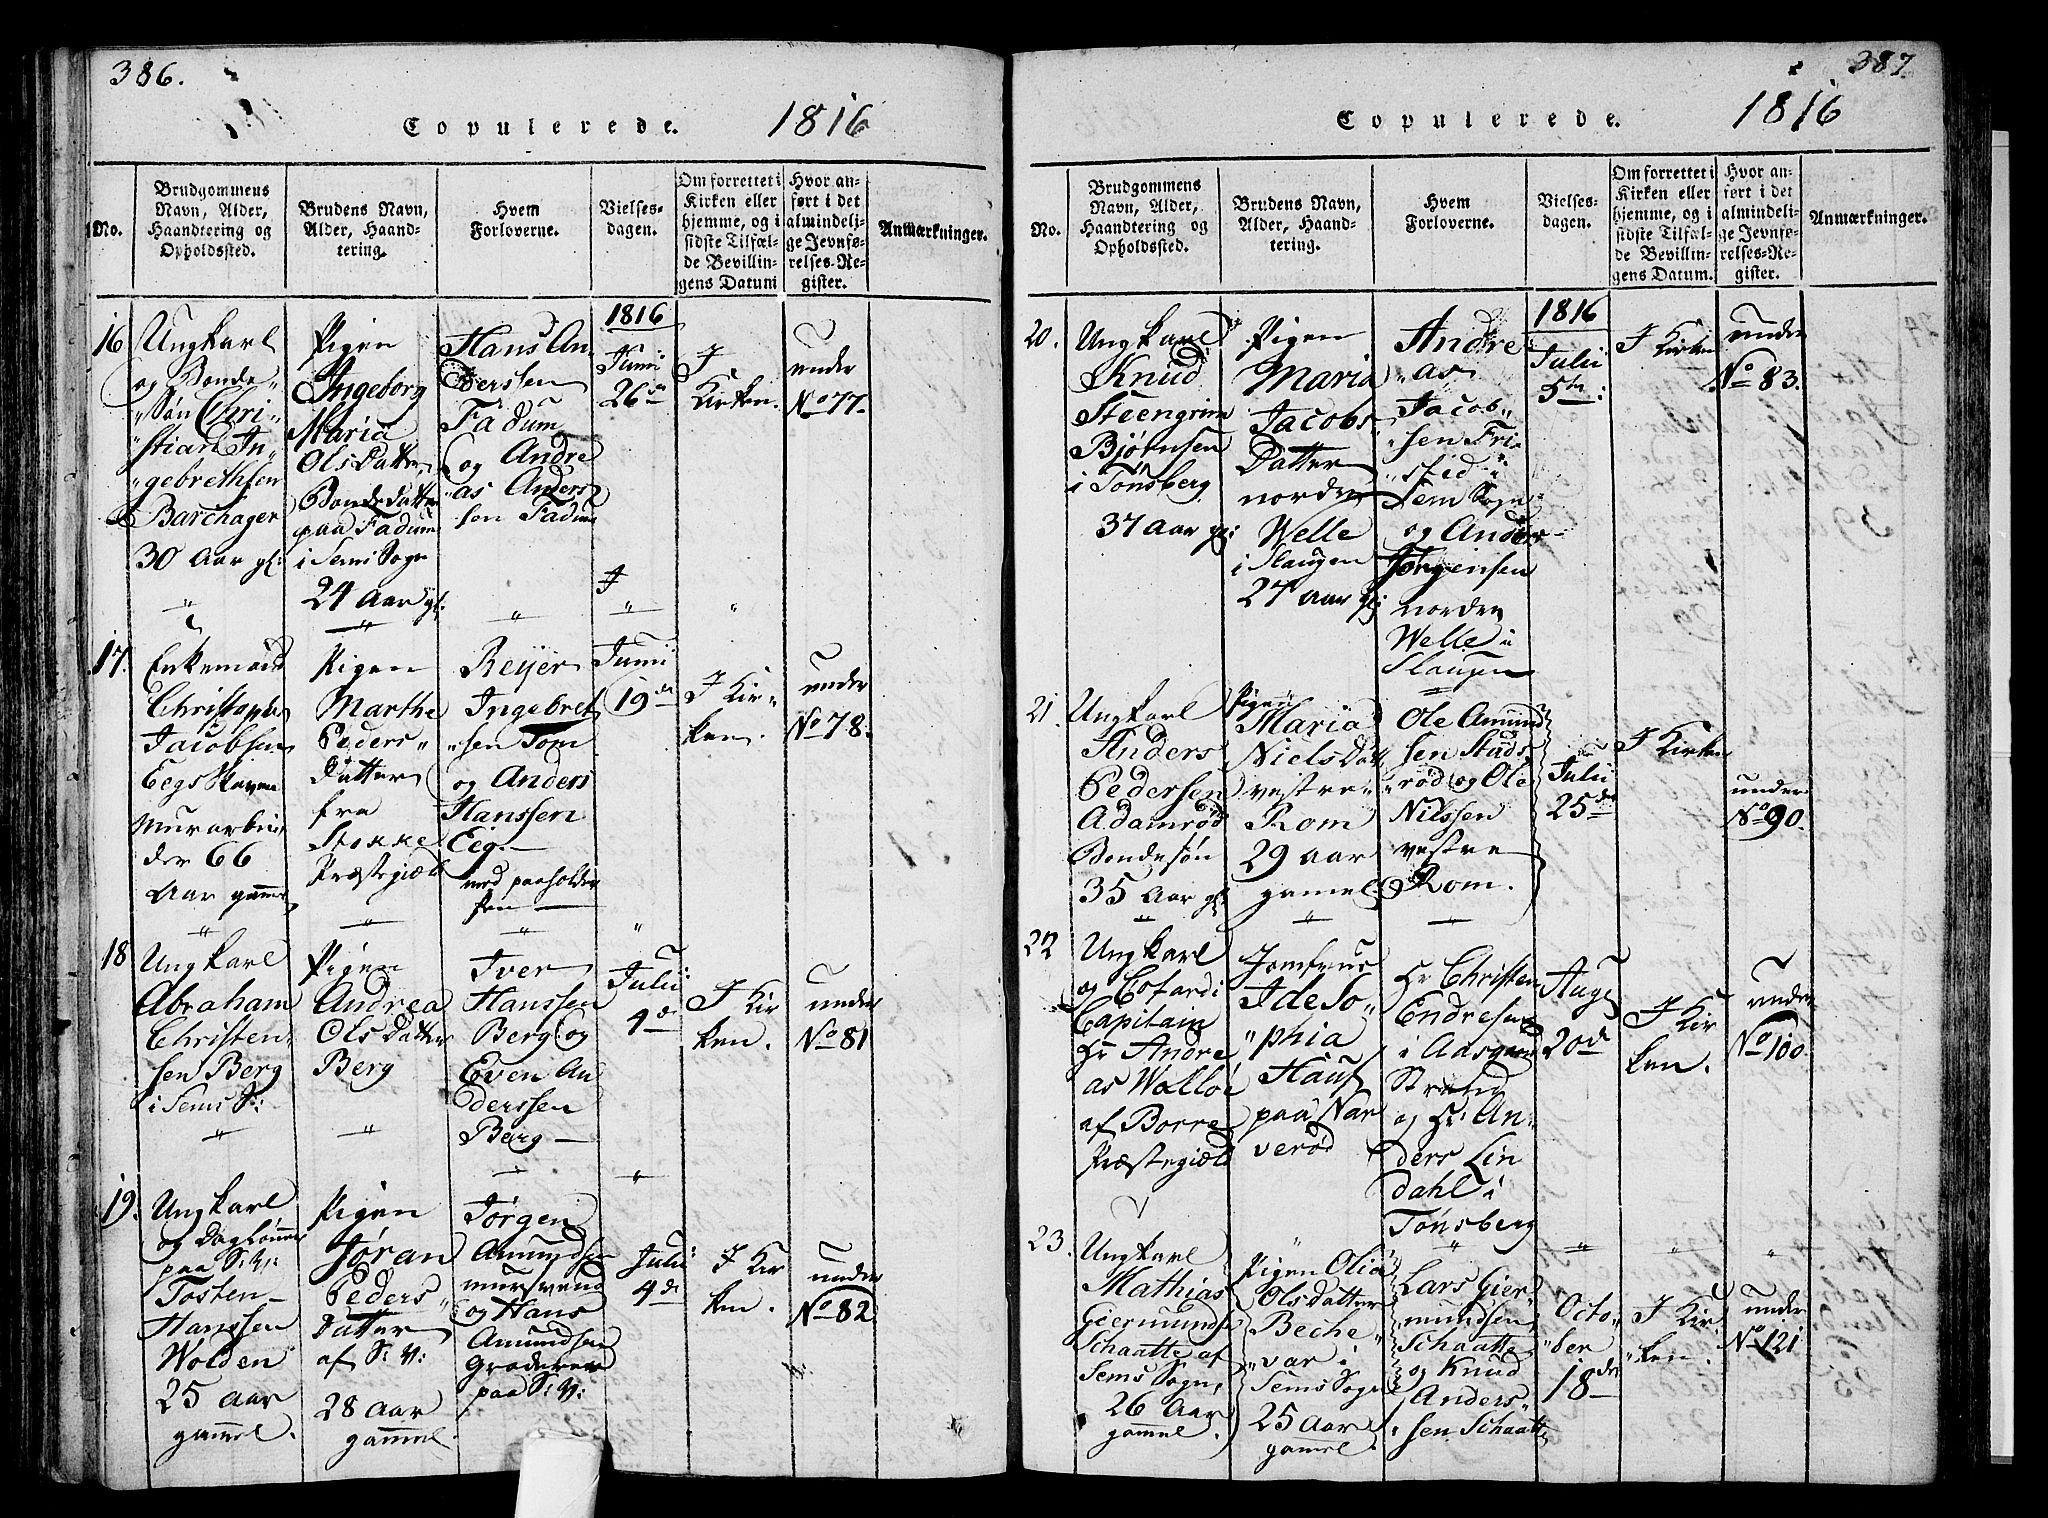 386.
Copulerede. 1816
No.
Brudgommens
Navn, Alder,
Haandtering og
Opholdssted.
Brudens Navn,
Alder, Haand-
tering.
Hvem
Forloverne.
Vielses-
dagen.
Om forrettet i
Kirken eller
hjemme, og i
sidste Tilfæl-
de Bevillin-
gens Datum
Hvor an-
ført i det
almindeli-
ge Jevnfø-
relses-Re-
gister.
Anmærkninger.
16
Ungkarl
og Bonde-
Søn Chri-
stian In-
gebrethsen
Barchager
30 Aar gl:
Pigen
Ingeborg
Maria
OlsDatter
BondeDatter
paa Fadum
i Sems Sogn
24 Aar gl:
Hans An-
derssen
Fadum
og Andre
as Anders
sen Fadum
1816
Junii
26de
I
Kirken.
under
No 77.
17.
Enkemand
Christopher
Jacobsen
Eegs Haven
Murarbei
der 66
Aar gammel
Pigen
Marthe
Peders
Datter
fra
Stokke
Præstegield
Reyer
Ingebret
sen Tom
og Anders
Hanssen
Eeg
med paaholden
Pen
Junii
19de
I Kir-
ken.
under
No 78.
18
Ungkarl
Abraham
Christen-
sen Berg
i Sems S:
Pigen
Andrea
OlsDatter
Berg
Iver
Hanssen
Berg og
Even An
derssen
Berg
Julii
4de
I Kir
ken.
under
No 81
19.
Ungkarl
og Daglønner
paa S: V:
Tosten
Hanssen
Wolden
25 aar
gammel.
Pigen
Jøran
Peders
Datter
af S: V:
28 aar
gammel
Jørgen
Amundsen
mursvend
og Hans
Amundsen
paa S: V:
Julii
4de
I Kir
ken.
under
No 82
387.
Copulerede. 1816
No.
Brudgommens
Navn, Alder,
Haandtering og
Opholdssted.
Brudens Navn,
Alder, Haand-
tering.
Hvem
Forloverne.
Vielses-
dagen.
Om forrettet i
Kirken eller
hjemme, og i
sidste Tilfæl-
de Bevillin-
gens Datum.
Hvor an-
ført i det
almindeli-
ge Jevnfø-
relses-Re-
gister.
Anmærkninger.
20.
Ungkarl
Knud
Steengrim
Bjørnsen
i Tønsberg
37 Aar gl:
Pigen
Maria
Jacobs
Datter
norden
Welle
i Slaugen
27 aar gl:
Andre
as
Jacob
sen Fri
stid i
Sem Sogn
og Anders
Jørgensen
norden
Welle i
Slaugen
1816
Julii
5te:
I Kirken
under
No 83.
21.
Ungkarl
Anders
Pedersen
Adamrød
Bondesøn
35 Aar gl:
Pigen
Maria
NielsDatt
vestre
Rom
29 aar
gamel.
Ole Amund
sen Stads
rød og Ole
Nilssen
vestre
Rom.
Julii
25de
I Kirken
under
No 90.
22
Ungkarl
og Cofardi
Capitain
Hr Andre
as Walløe
af Borre
Præstegield
Jomfrue
Ide So
phia
Hauf
paa Nar
verød
Hr Christen
Endresen
i Aasgaard
Strand
og Hr: An-
ders Lin
dahl i
Tønsberg
Aug
20de
I Kir
ken.
under
No 100.
23.
Ungkarl
Mathias
Giermundse
Schaatte af
Sems Sogn,
26 Aar
gammel.
Pigen Olia
Olsdatter
Beche
var i
Sems Sogn
25 Aar
gamel.
Lars Gier
mundsen
Schaatte
og Knud
Anders
sen Schaatte
Octo
ber
18de
I Kir
ken.
under
No 121